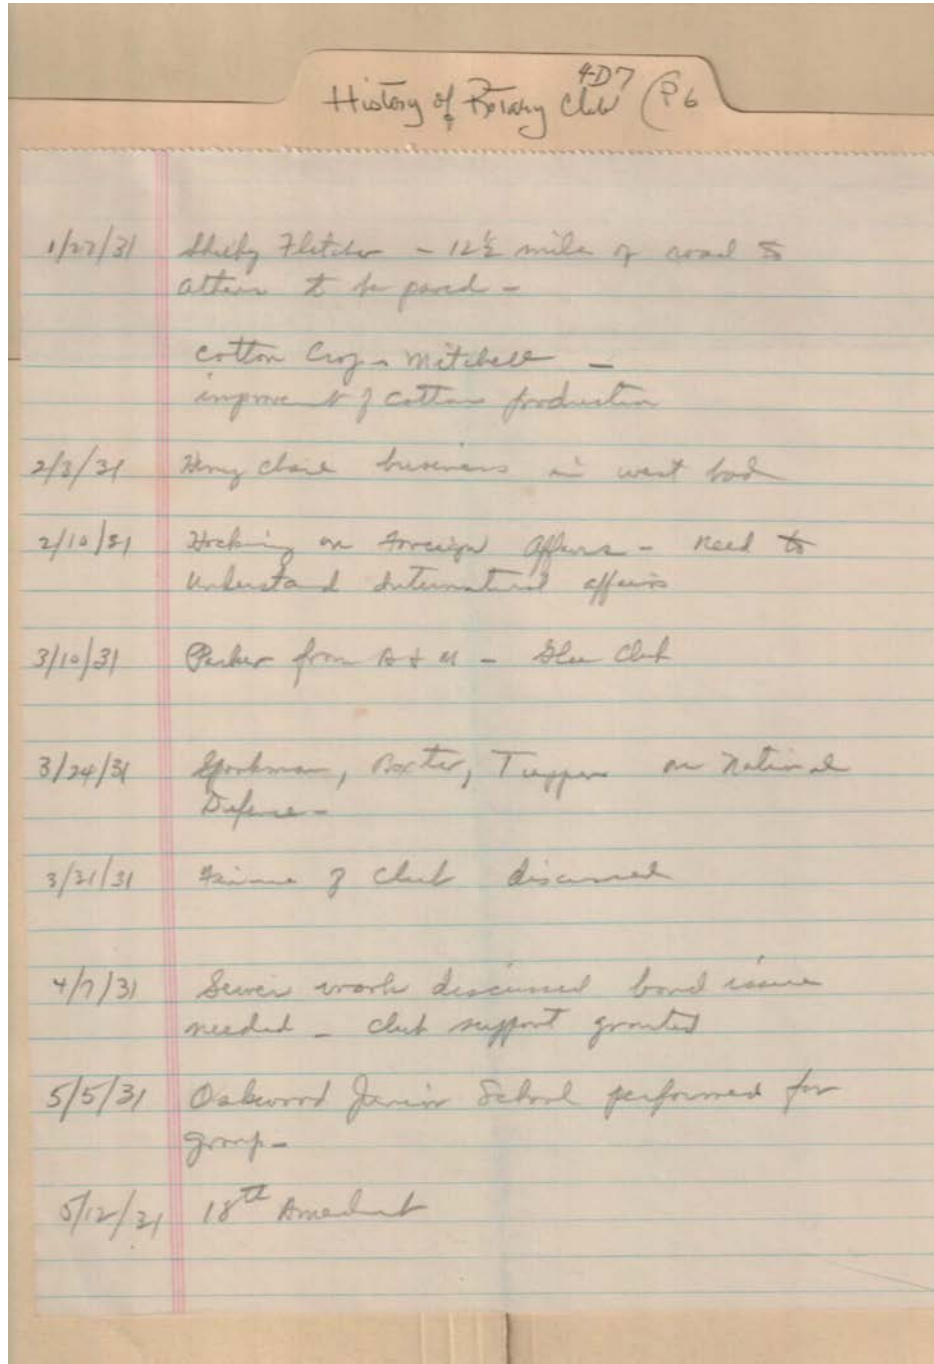 4-D7
History of Rotary Club (P6
1/27/31 Shelby Fletcher - 12½ mile of road &
to be paved -
Cotton Crop - Mitchell -
improvement of cotton production
2/3/31 business in west bad
2/10/31 Hocking on Foreign Affairs - need to
understand International affairs
3/10/31 Parker from A & M - Glee Club
3/24/31 Sparkman, on National
Defense -
3/31/31 Finance of Club discussed
4/7/31 Sewer work discussed bond issue
needed - club support granted
5/5/31 Oakwood Junior School performed for
group -
5/12/31 18th Amendment